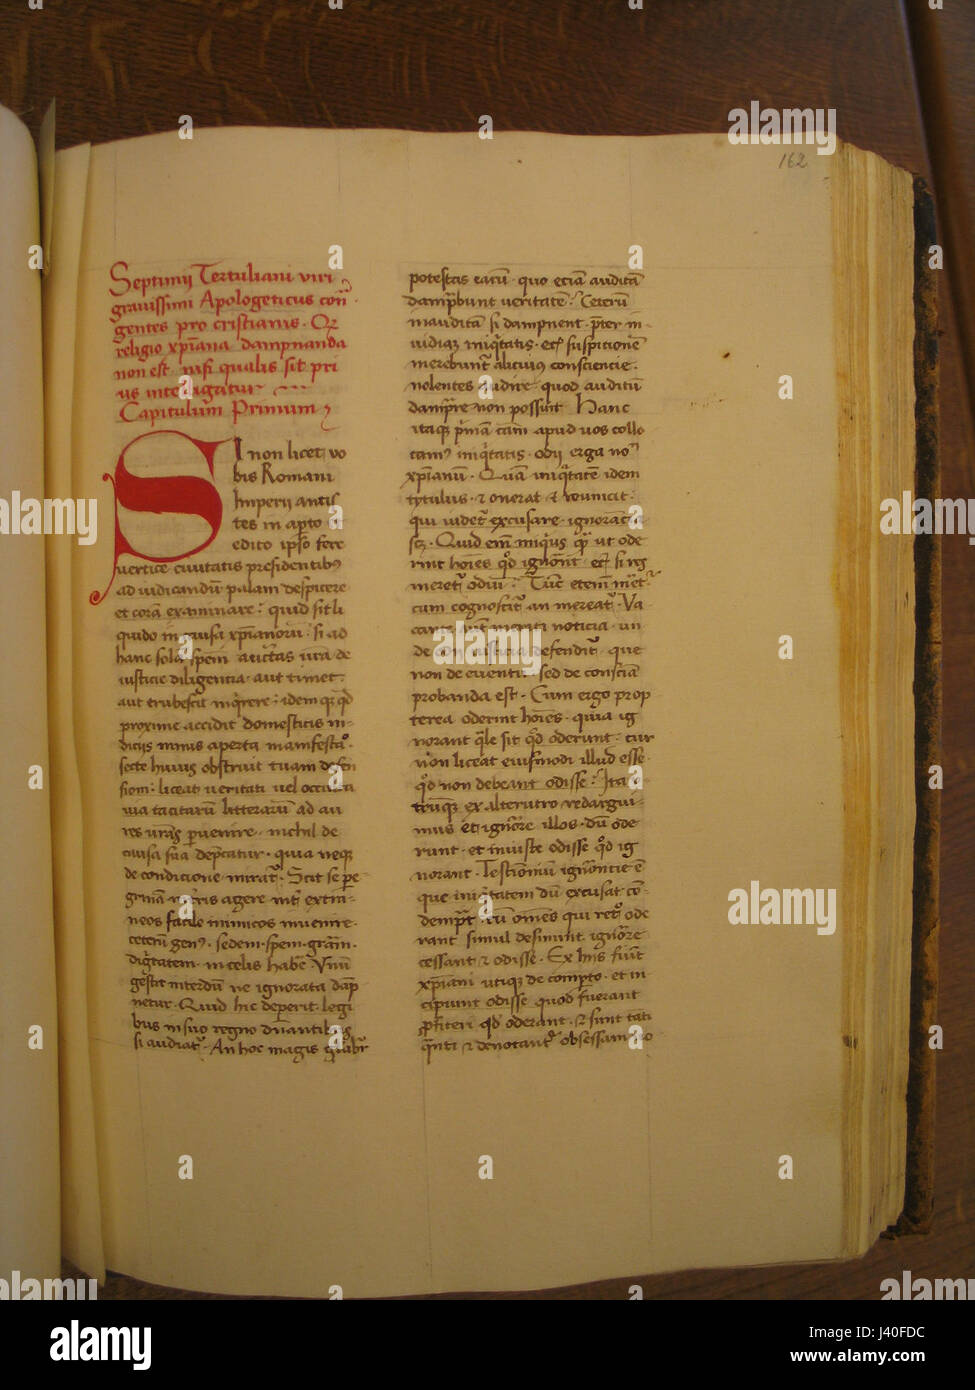 162
Septimij Tertuliani viri
grauissimi Apologeticus con̄
gentes pro cristianis · Qr
religio xp̄iana dampnanda
non est · nisi qualis sit pri
us intelligatur
Capitulum Primum
SI non licet vo
bis Romani
Imperij antis
tes in aperto
edito ipso fere
vertice ciuitatis presidentibꝰ
ad iudicandū palam dispicere
et corā examinare · quid sit li
quido in causa xp̄ianorū · si ad
hanc solā spem̄ auct̄tas ura de
iusticie diligencia · aut timet ·
aut erubescit inq̄rere · idem
proxime accidit domesticis in-
dicijs nimis aperta manifestaꝰ ·
secte huius obstruit viam defen
siom · liceat veritati vel occulta
via tacitarū litterarū ad au
res vrās ꝑuenire · nichil de
causa sua dep̄catur · quia neqꝫ
de condicione miratꝰ · Scit se pe
grinā in terris agere int̄ extra
neos facile inimicos inuenire ·
ceterū genꝰ · sedem · spem · grām ·
dig̃tatem · in celis habē Vnū
gestit interdū ne ignorata dāp
netur · Quid hic deperit legi
bus in suo regno dn̄antibus
si audiatꝰ · An hoc magis
potestas earū · quo eciam auditā
damp̄bunt veritatē · Ceterū
inauditā si dampnent · p̄ter in-
uidiaꝫ iniq̄tatis · eciā suspitionē
merebunt̄ alicuius consciencie ·
nolentes audire quod auditū
damp̄re non possunt Hanc
itaqꝫ p̄mam cām apud vos collo
camꝰ iniq̄tatis · odij erga noīe
xp̄ianū · Quā iniq̄tatē idem
tytulus · & onerat & reuincit ·
qui videt̄ excusare · ignorāc̄
scꝫ · Quid em̄ iniqius q̄ ut ode
rint hoīes q̄d ignorāt · eciā si res
meret̄ odiū · Tūc etem̄ m̄et̄
cum cognoscit̄ an mereatꝰ · Va
cante meriti noticia · un
de odij iusticia defendit̄ · que
non de euentu sed de consciā
probanda est · Cum ergo prop
terea oderint hoīes · quia ig
norant q̄le sit q̄d oderunt · cur
non liceat eiusmodi illud esse
q̄d non debeant odisse · Ita
trumqꝫ ex alterutro redargui-
mus et ignōre illos · dū ode
runt · et iniuste odisse q̄d ig
norant · Testimoniū ignōrancie ē
que iniq̄tatem dū excusat cō-
demp̄t · cū omēs qui ret̄o ode
rant simul desinunt ignōrare
cessant & odisse · Ex hijs fiūt
xp̄iani utiqꝫ de comp̄to · et in
cipiunt odisse quod fuerant
ꝓfiteri q̄d oderant · & sunt tāti
q̄nti & denotant̄ obsessam
alamy
Image ID: J40FDC
www.alamy.com